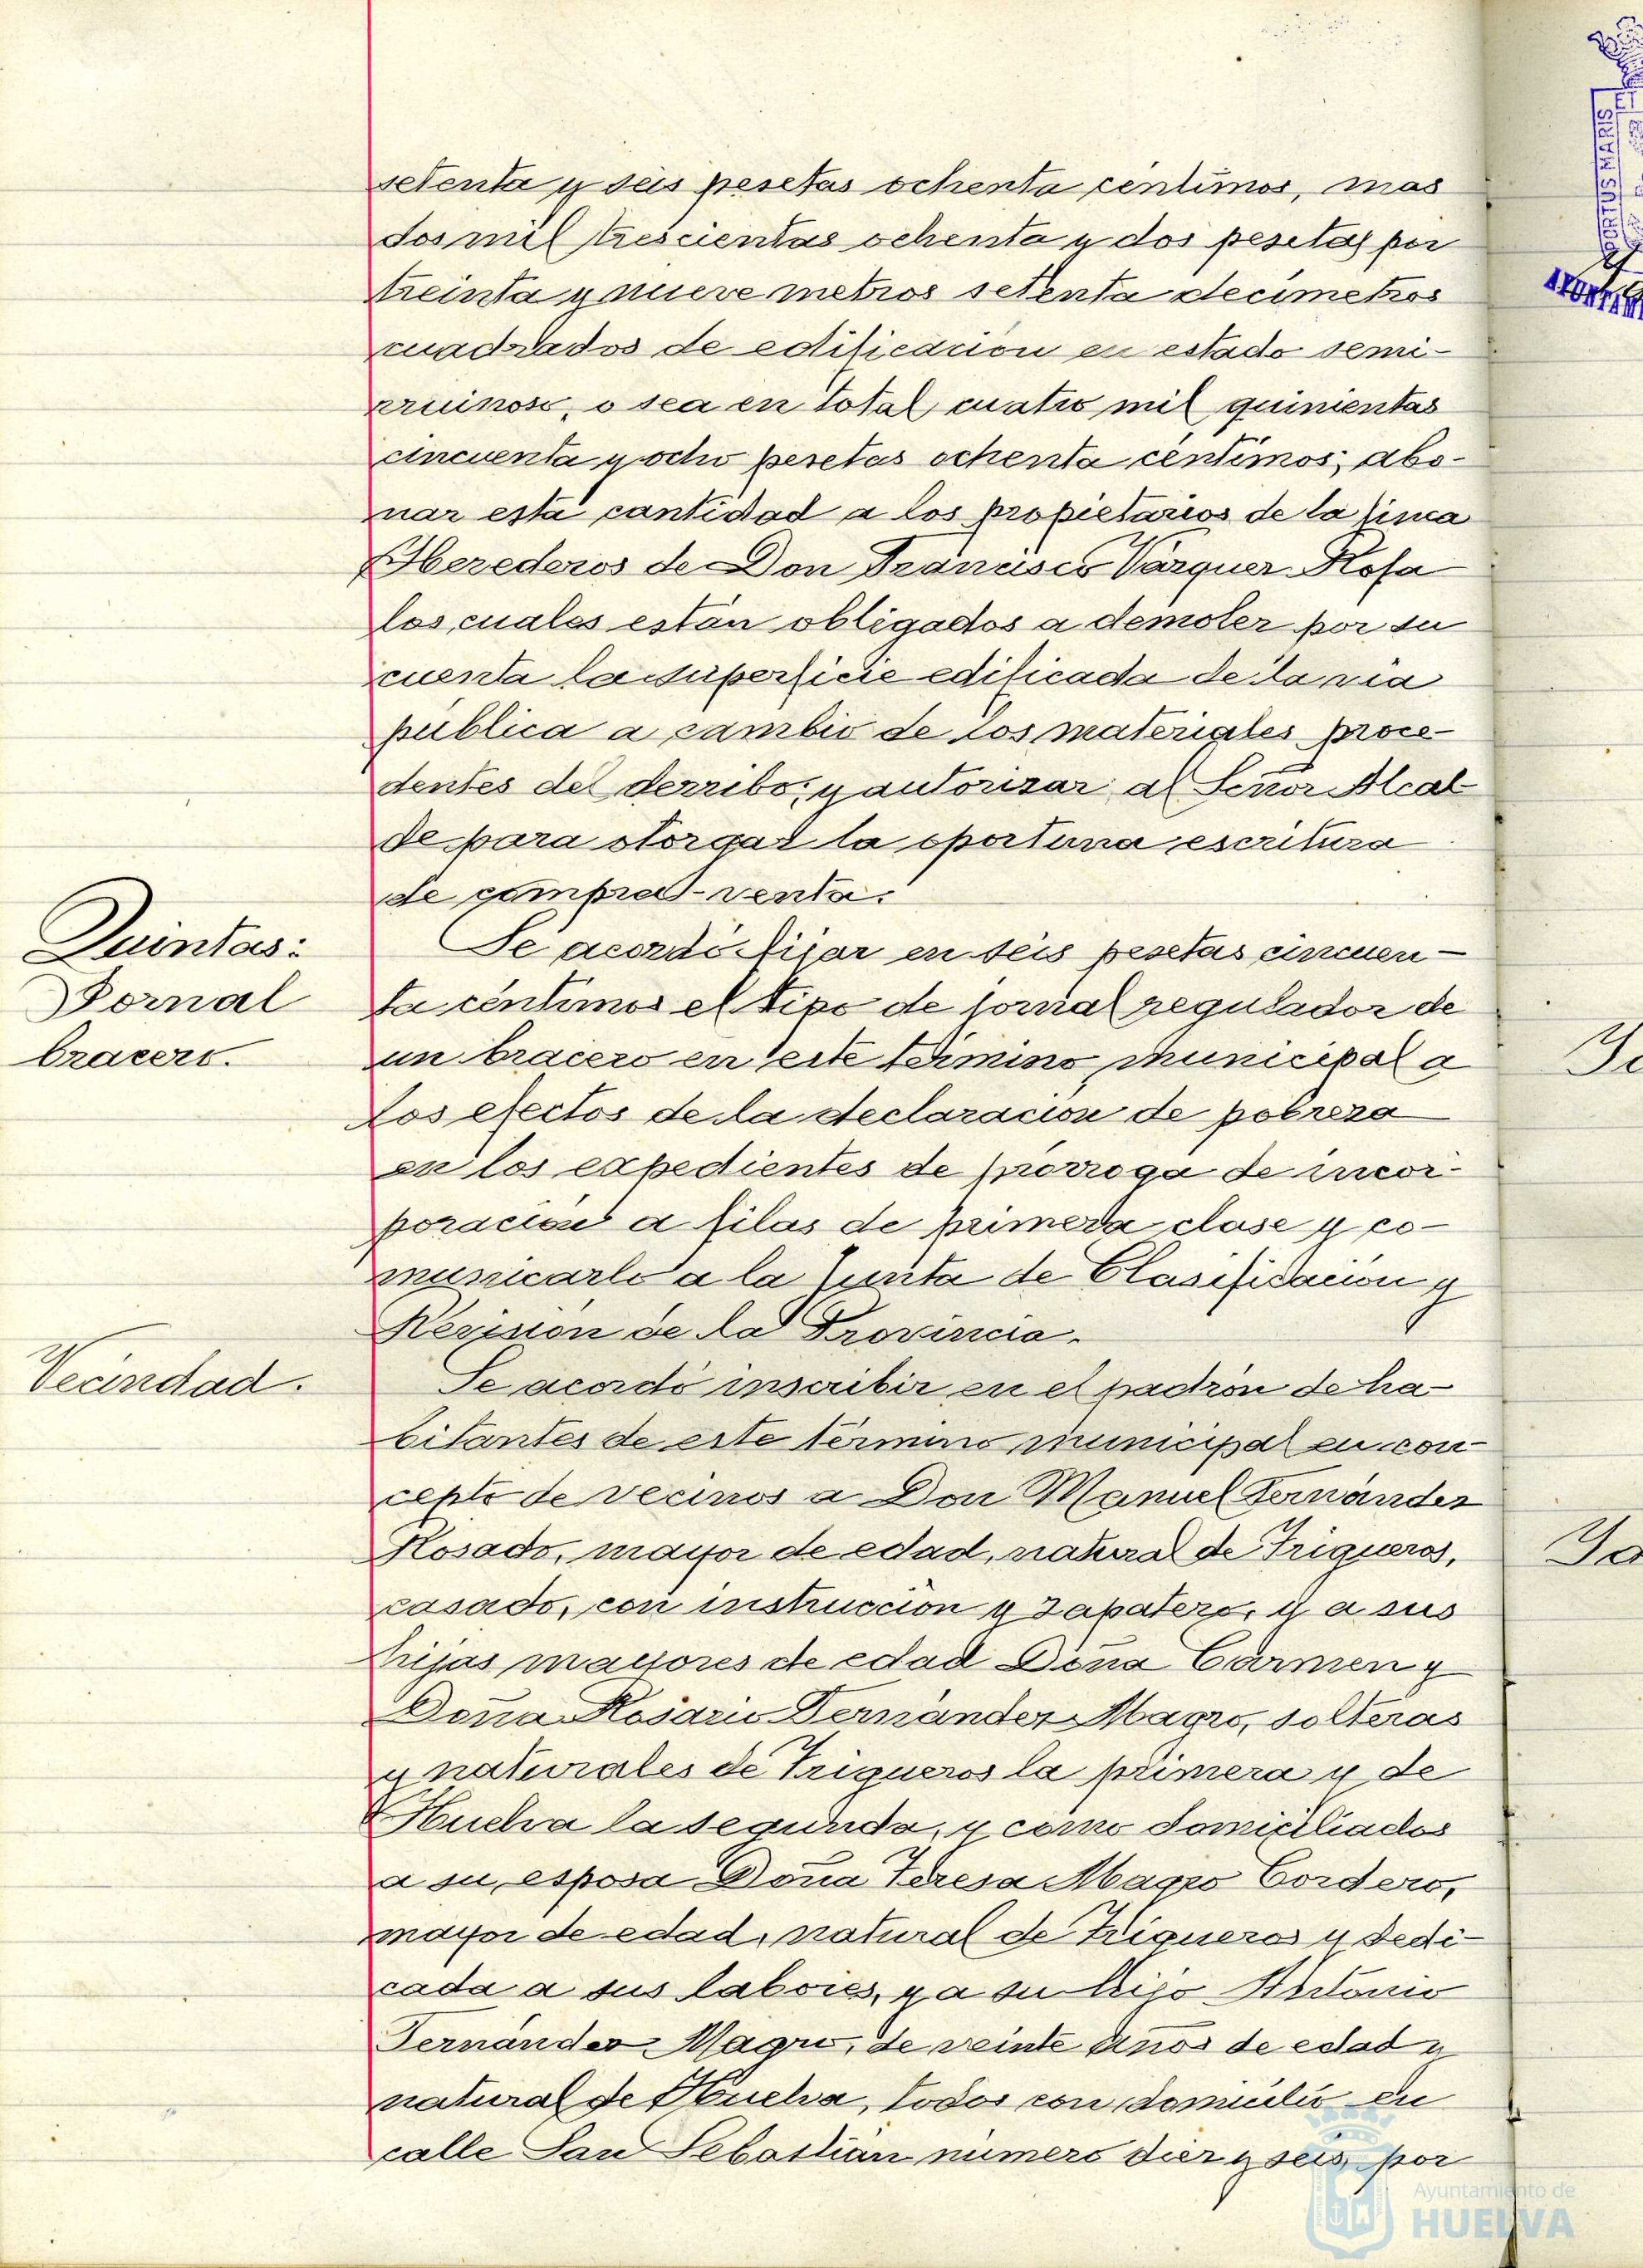 setenta y seis pesetas ochenta centimos, mas
dos mil trescientas ochenta y dos pesetas por
treinta y nueve metros setenta decimetros
cuadrados de edificación en estado semi-
rruinoso, o sea en total cuatro mil quinientas
cincuenta y ocho pesetas ochenta centimos; abo-
nar esta cantidad a los propietarios de la finca
Herederos de Don Francisco Vázquez Rosa
los cuales están obligados a demoler por su
cuenta la superficie edificada de la via
pública a cambio de los materiales proce-
dentes del derribo; y autorizar al Señor Alcal-
de para otorgar la oportuna escritura
de compra-venta.
Quintas:
Jornal
bracero.
Se acordó fijar en seis pesetas cincuen-
ta céntimos el tipo de jornal regulador de
un bracero en este término municipal a
los efectos de la declaración de pobreza
en los expedientes de prórroga de incor-
poración a filas de primera clase y co-
municarlo a la Junta de Clasificación y
Revisión de la Provincia.
Vecindad.
Se acordó inscribir en el padrón de ha-
bitantes de este término municipal en con-
cepto de vecinos a Don Manuel Fernández
Rosado, mayor de edad, natural de Trigueros,
casado, con instrucción y zapatero, y a sus
hijas mayores de edad Doña Carmen y
Doña Rosario Fernández Magro, solteras
y naturales de Trigueros la primera y de
Huelva la segunda, y como domiciliados
a su esposa Doña Teresa Magro Cordero,
mayor de edad, natural de Trigueros y dedi-
cada a sus labores, y a su hijo Antonio
Fernández Magro, de veinte años de edad y
natural de Huelva, todos con domicilio en
calle San Sebastián número diez y seis, por
PORTUS MARIS ET
Ayuntamiento de
HUELVA